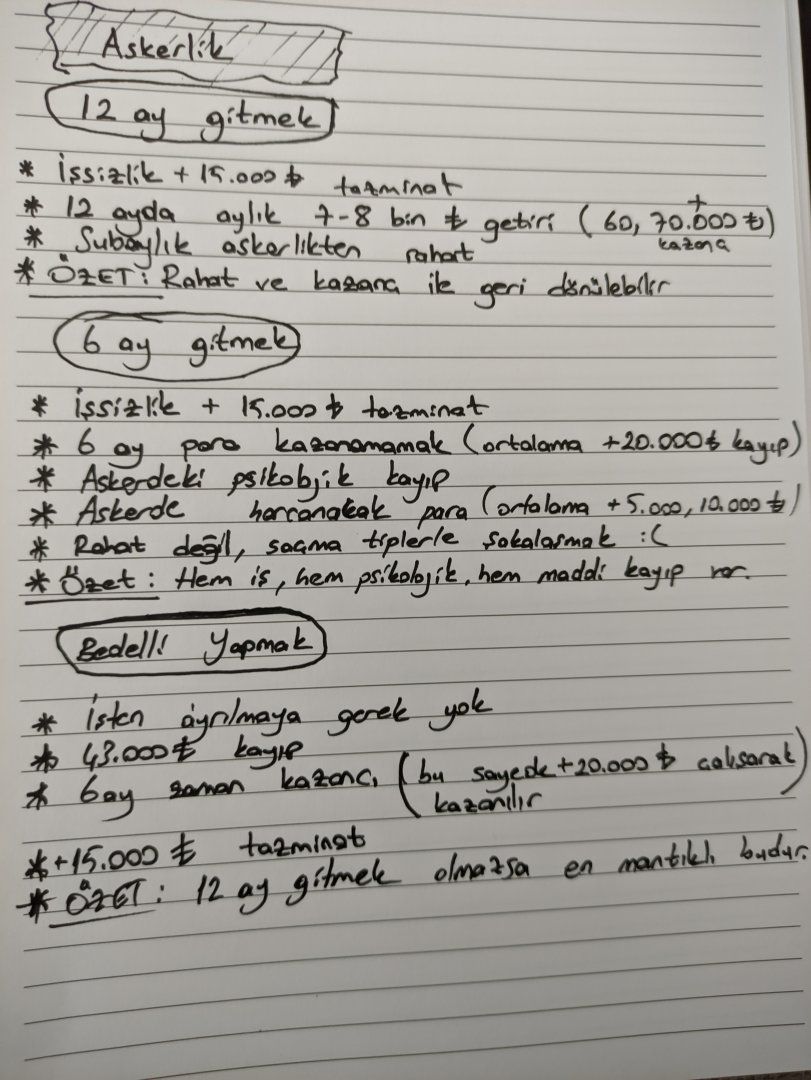 Askerlik
12 ay gitmek
* İşsizlik + 15.000 ₺ tazminat
* 12 ayda aylık 7-8 bin ₺ getiri (60, 70.000 ₺)
+
kazanç
* Subaylık askerlikten rahat
* ÖZET: Rahat ve kazanç ile geri dönülebilir
6 ay gitmek
* İşsizlik + 15.000 ₺ tazminat
* 6 ay para kazanamamak (ortalama +20.000₺ kayıp)
* Askerdeki psikolojik kayıp
* Askerde harcanacak para (ortalama +5.000, 10.000 ₺)
* Rahat değil, saçma tiplerle şakalaşmak :(
* Özet: Hem iş, hem psikolojik, hem maddi kayıp var.
Bedelli Yapmak
* İşten ayrılmaya gerek yok
* 43.000 ₺ kayıp
* 6 ay zaman kazancı (bu sayede +20.000 ₺ çalışarak
kazanılır)
* +15.000 ₺ tazminat
* ÖZET: 12 ay gitmek olmazsa en mantıklı budur.